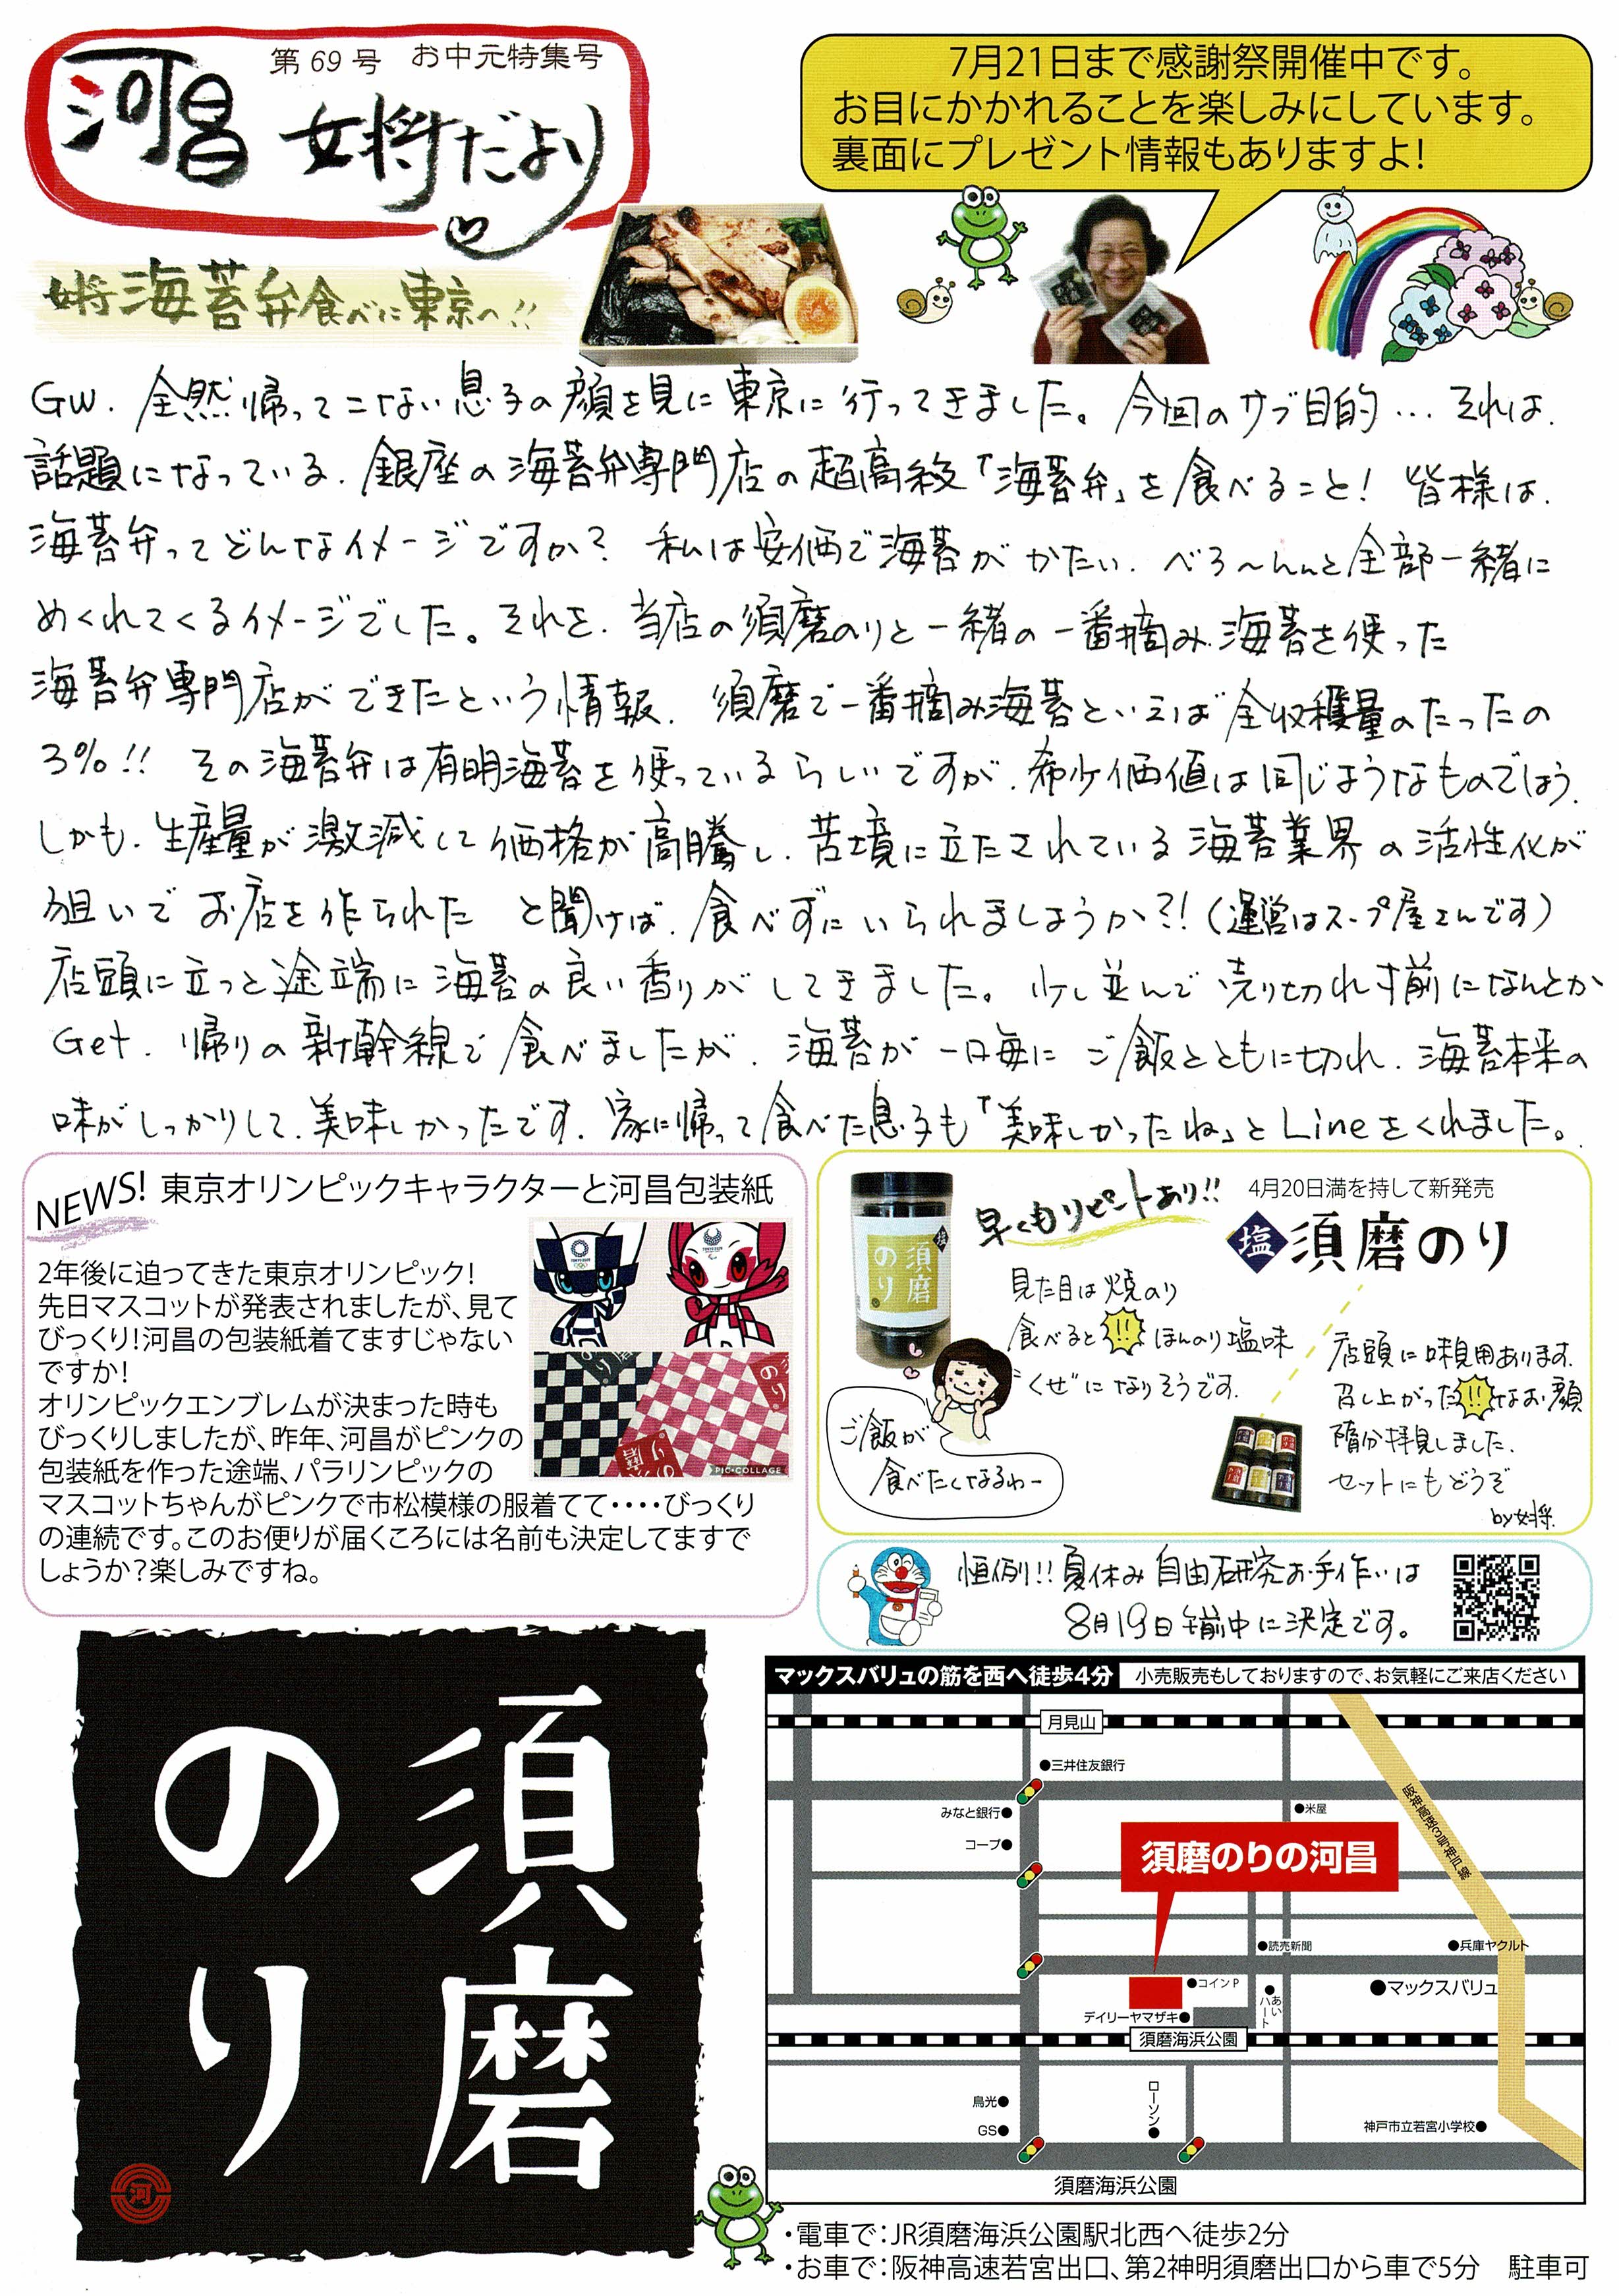 第69号 お中元特集号
河昌 女将だより
7月21日まで感謝祭開催中です。
お目にかかれることを楽しみにしています。
裏面にプレゼント情報もありますよ!
女将 海苔弁食べに東京へ!!
GW. 全然帰ってこない息子の顔を見に東京に行ってきました。今回のサブ目的…それは、
話題になっている、銀座の海苔弁専門店の超高級「海苔弁」を食べること! 皆様は、
海苔弁ってどんなイメージですか? 私は安価で海苔がかたい、べろ〜んと全部一緒に
めくれてくるイメージでした。それを、当店の須磨のりと一緒の一番摘み海苔を使った
海苔弁専門店ができたという情報、須磨で一番摘み海苔といえば全収穫量のたったの
3%!! その海苔弁は有明海苔を使っているらしいですが、希少価値は同じようなものでしょう、
しかも、生産量が激減して価格が高騰し、苦境に立たされている海苔業界の活性化が
狙いでお店を作られた と聞けば、食べずにいられましょうか?!(運営はスープ屋さんです)
店頭に立つと途端に海苔の良い香りがしてきました。少し並んで売り切れ寸前になんとか
Get. 帰りの新幹線で食べましたが、海苔が一口毎にご飯とともに切れ、海苔本来の
味がしっかりして、美味しかったです。家に帰って食べた息子も「美味しかったね」とLineをくれました。
NEWS! 東京オリンピックキャラクターと河昌包装紙
2年後に迫ってきた東京オリンピック!
先日マスコットが発表されましたが、見て
びっくり!河昌の包装紙着てますじゃない
ですか!
オリンピックエンブレムが決まった時も
びっくりしましたが、昨年、河昌がピンクの
包装紙を作った途端、パラリンピックの
マスコットちゃんがピンクで市松模様の服着てて・・・・びっくり
の連続です。このお便りが届くころには名前も決定してますで
しょうか?楽しみですね。
PIC・COLLAGE
早くもリピートあり!!
4月20日満を持して新発売
塩 須磨のり
塩
須磨
のり
見た目は焼のり
食べると!!ほんのり塩味
"くせ"になりそうです.
ご飯が
食べたくなるわー
店頭に味見用あります.
召し上がった!!なお顔
随分拝見しました.
セットにもどうぞ
by女将.
恒例!!夏休み自由研究お手伝いは
8月19日午前中に決定です。
須磨
のり
河
マックスバリュの筋を西へ徒歩4分
小売販売もしておりますので、お気軽にご来店ください
月見山
●三井住友銀行
みなと銀行●
●米屋
コープ●
阪神高速3号神戸線
須磨のりの河昌
●読売新聞
●兵庫ヤクルト
●コインP
●マックスバリュ
●あいハート
デイリーヤマザキ●
須磨海浜公園
鳥光●
ローソン●
GS●
神戸市立若宮小学校●
須磨海浜公園
・電車で:JR須磨海浜公園駅北西へ徒歩2分
・お車で:阪神高速若宮出口、第2神明須磨出口から車で5分 駐車可